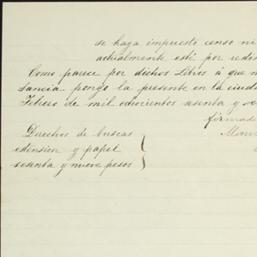 se haya impuesto censo ni
actualmente esté por redim
Como parece por dichos Libros á que m
tancia pongo la presente en la ciuda
Febrero de mil ochocientos sesenta y
firmado
Derechos de buscas
extension y papel
sesenta y nueve pesos